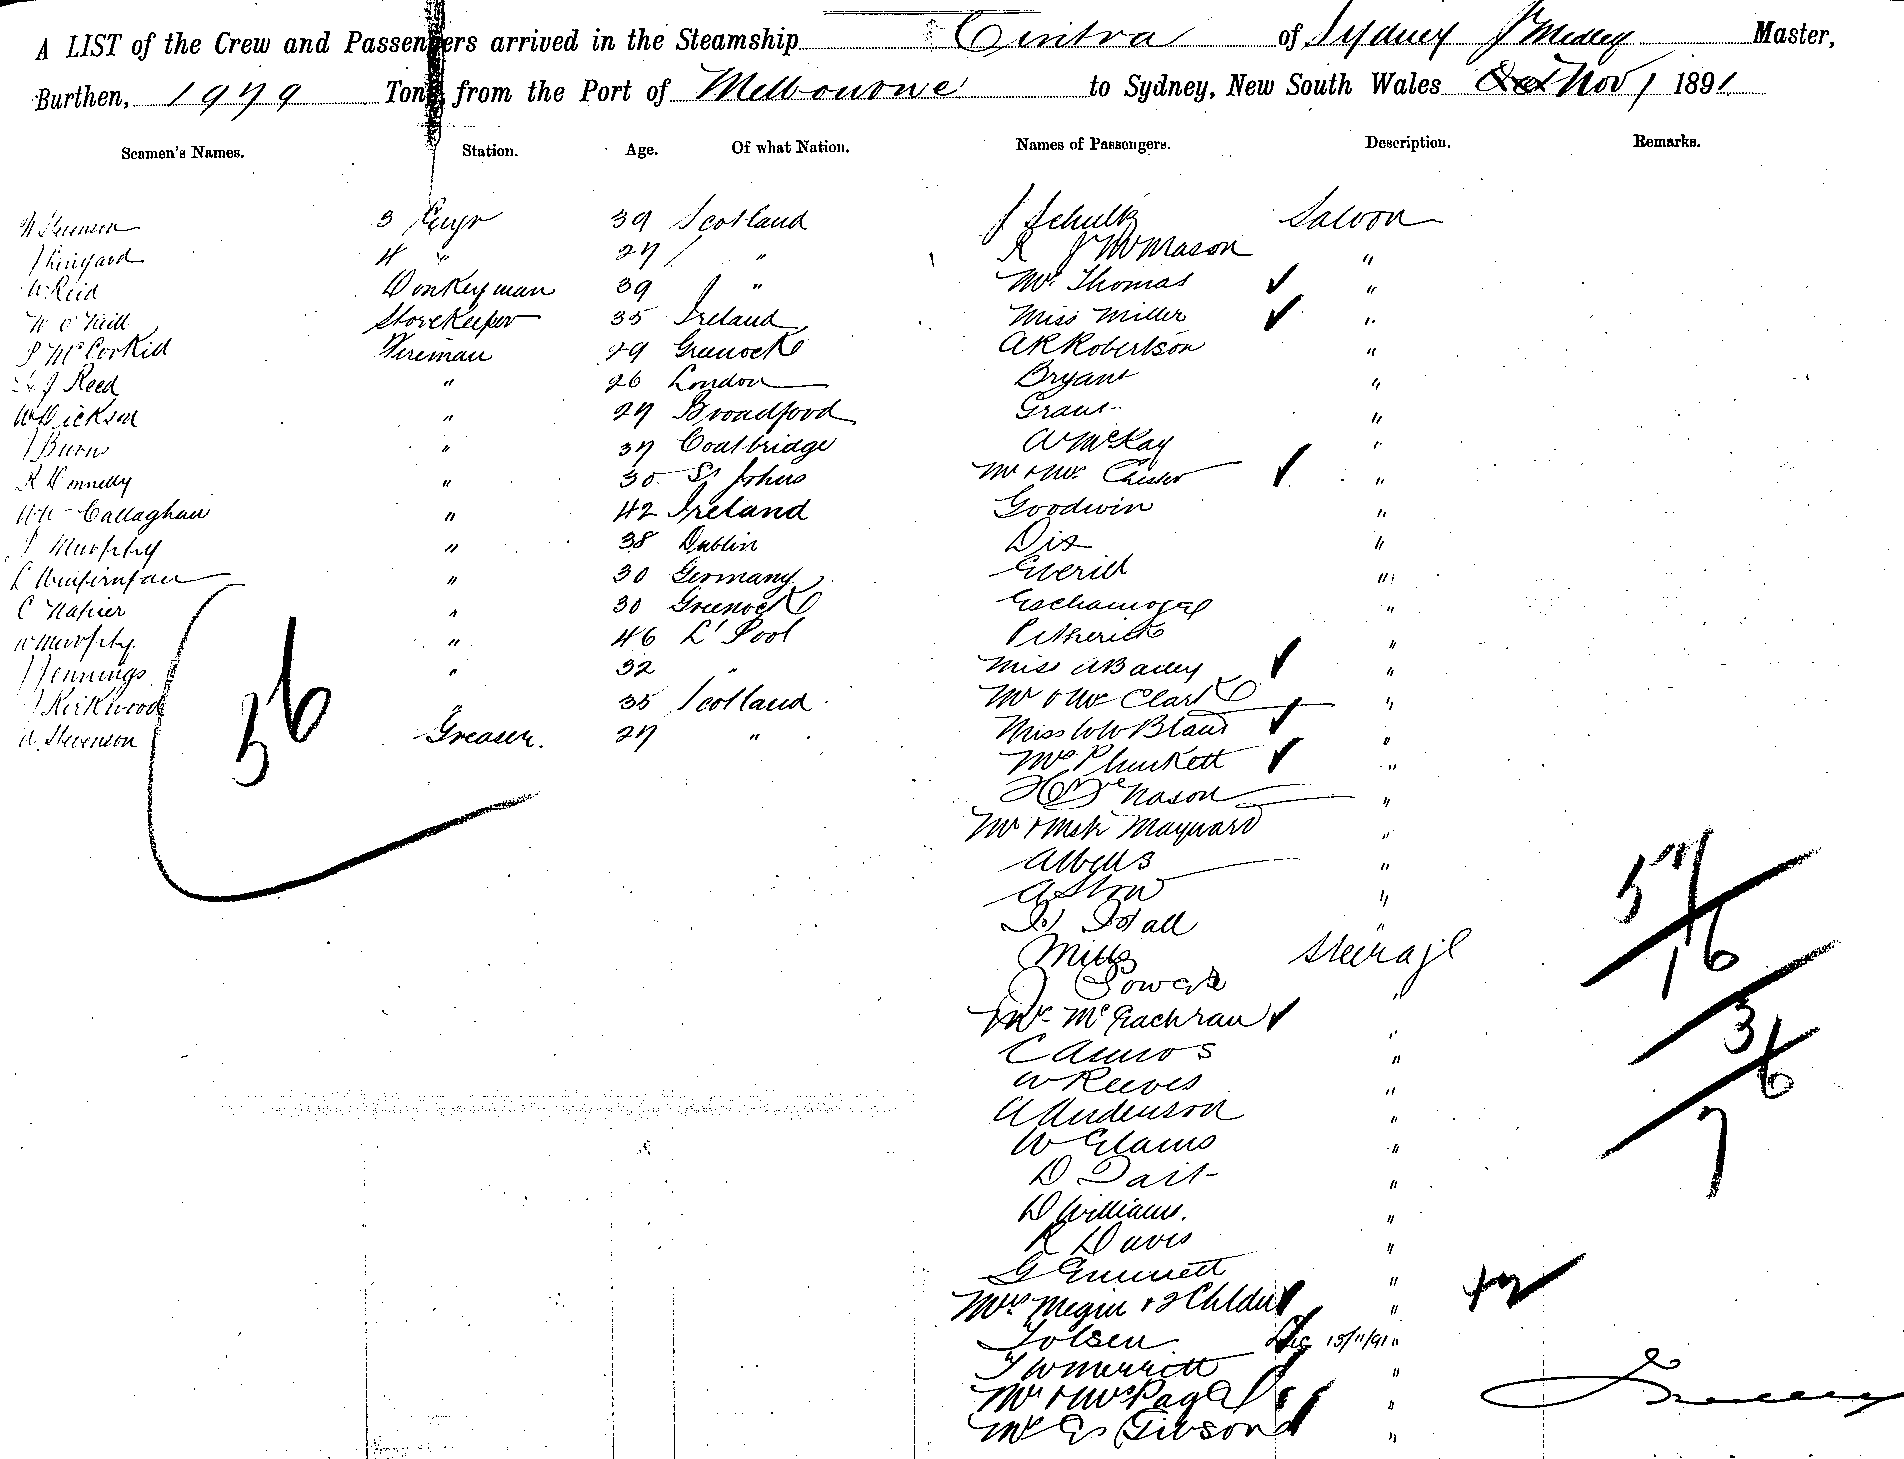 A LIST of the Crew and Passengers arrived in the Steamship Cintra of Sydney J Medley Master,
Burthen, 1979 Tons, from the Port of Melbourne to Sydney, New South Wales Oct Nov 1 1891
Seamen's Names. Station. Age. Of what Nation. Names of Passengers. Description. Remarks.
3 Engr 39 Scotland J Schultz Saloon
J Lingard 4 " 27 " R J McMason "
W Reid Donkeyman 39 " Mrs Thomas "
W O'Neill Storekeeper 35 Ireland Miss Miller "
J McCorkid Fireman 29 Greenock A R Robertson "
J Reed " 26 London Bryant "
W Dickson " 27 Broadford Grant "
J Burns " 37 Coatbridge A McKay "
R Donnelly " 30 St Johns Mr & Mrs "
Callaghan " 42 Ireland Goodwin "
J Murphy " 38 Dublin Dix "
" 30 Germany Everid "
C Napier " 30 Greenock "
W Murphy " 46 L'Pool Petherick "
J Jennings " 32 " Miss A Bailey "
J Kirkwood 35 Scotland Mr & Mrs Clark "
A. Stevenson Greaser. 27 " Miss W W Bland "
Mrs Plunkett "
56
Nason "
Mr & Mrs Maynard "
"
A Stow "
57
Hall "
16
Mills Steerage
J Powers "
Mrs McEachran "
36
C Amos "
W Reeves "
A Anderson "
7
W Elams "
D Tait "
D Williams. "
R Davis "
G Emmett "
Mrs Megin & 2 Childn "
+2
Tolsen 15/11/91 "
T W Merritt "
Mr & Mrs Page "
Mrs E Gibson "